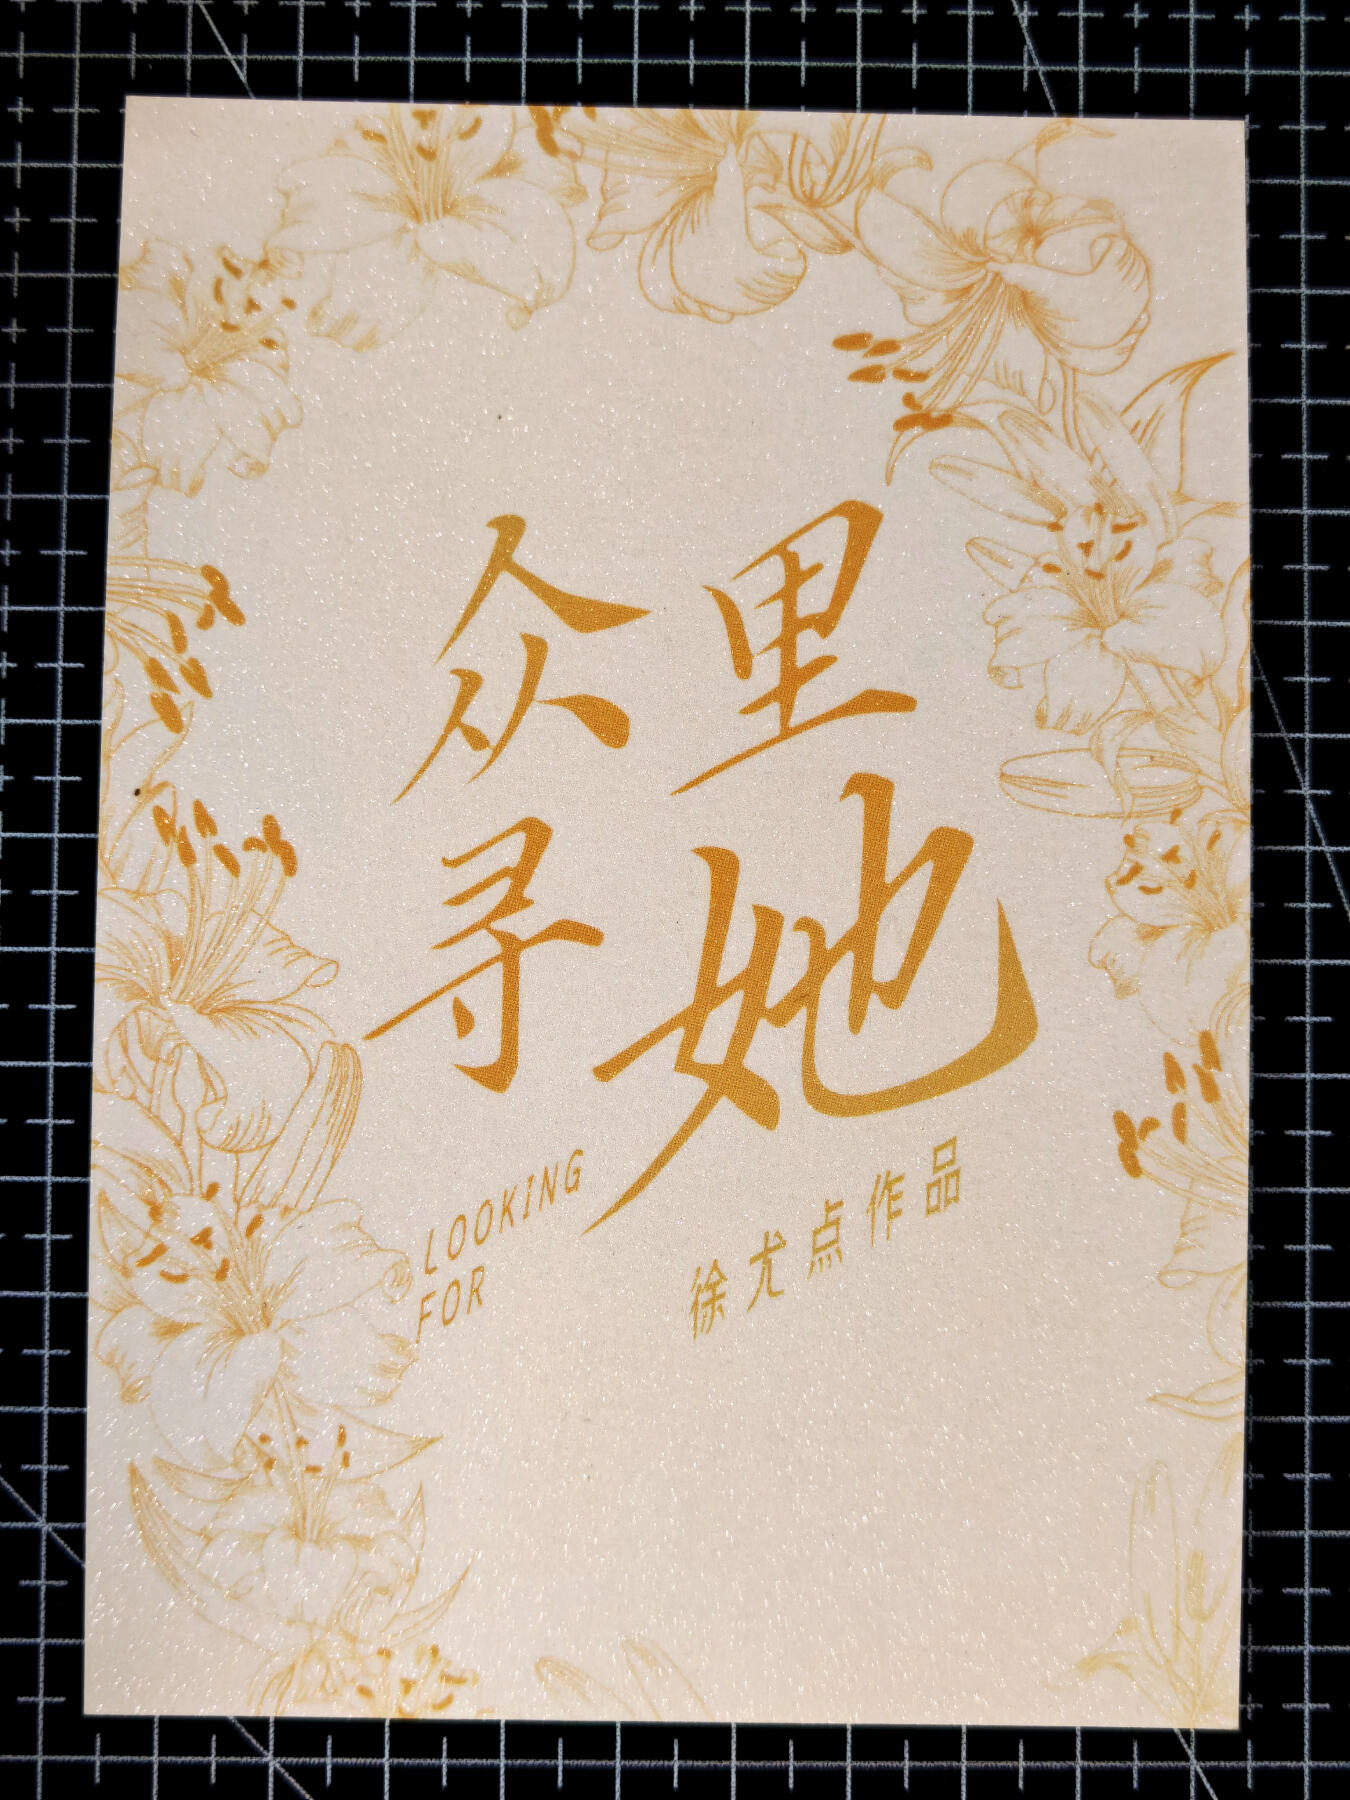 众里
寻她
LOOKING
FOR
徐尤点作品